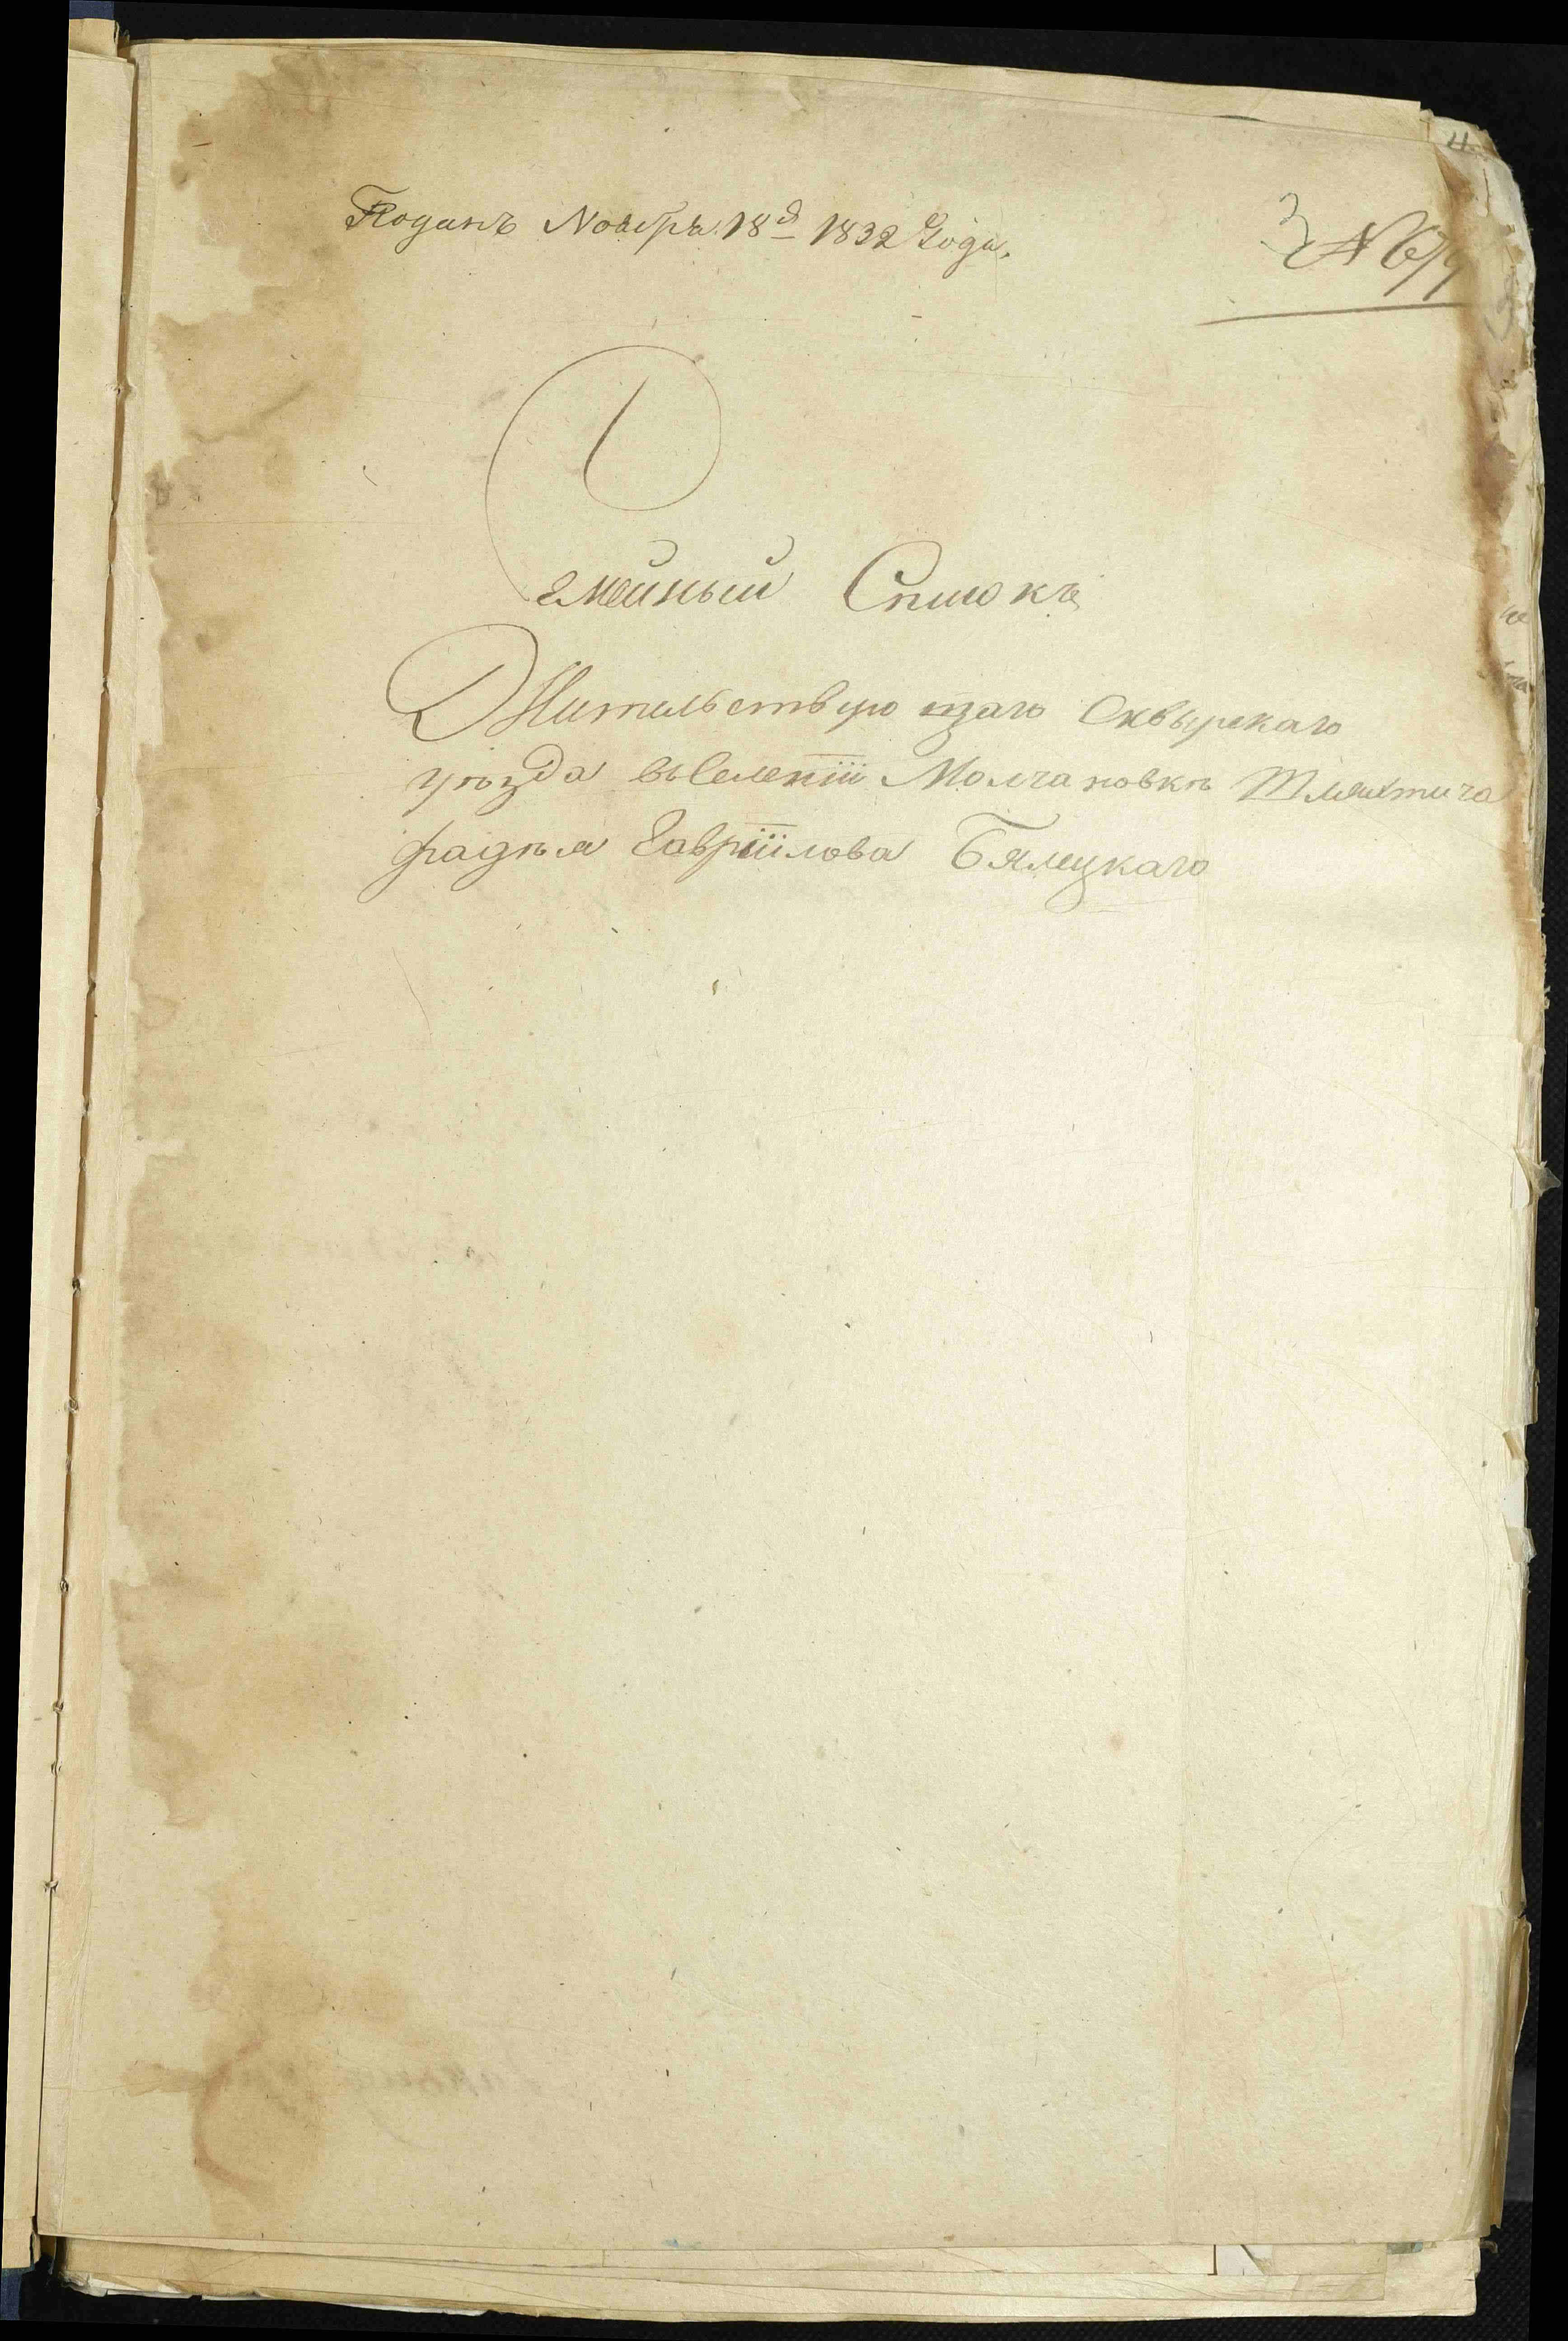 Поданъ Ноября 18 д 1832 Года.
№ 679
Семейный Списокъ
Жительствующаго Сквырскаго
уѣзда въ Селеніи Молчановкѣ Шляхтича
Фадѣя Гавріилова Бялецкаго